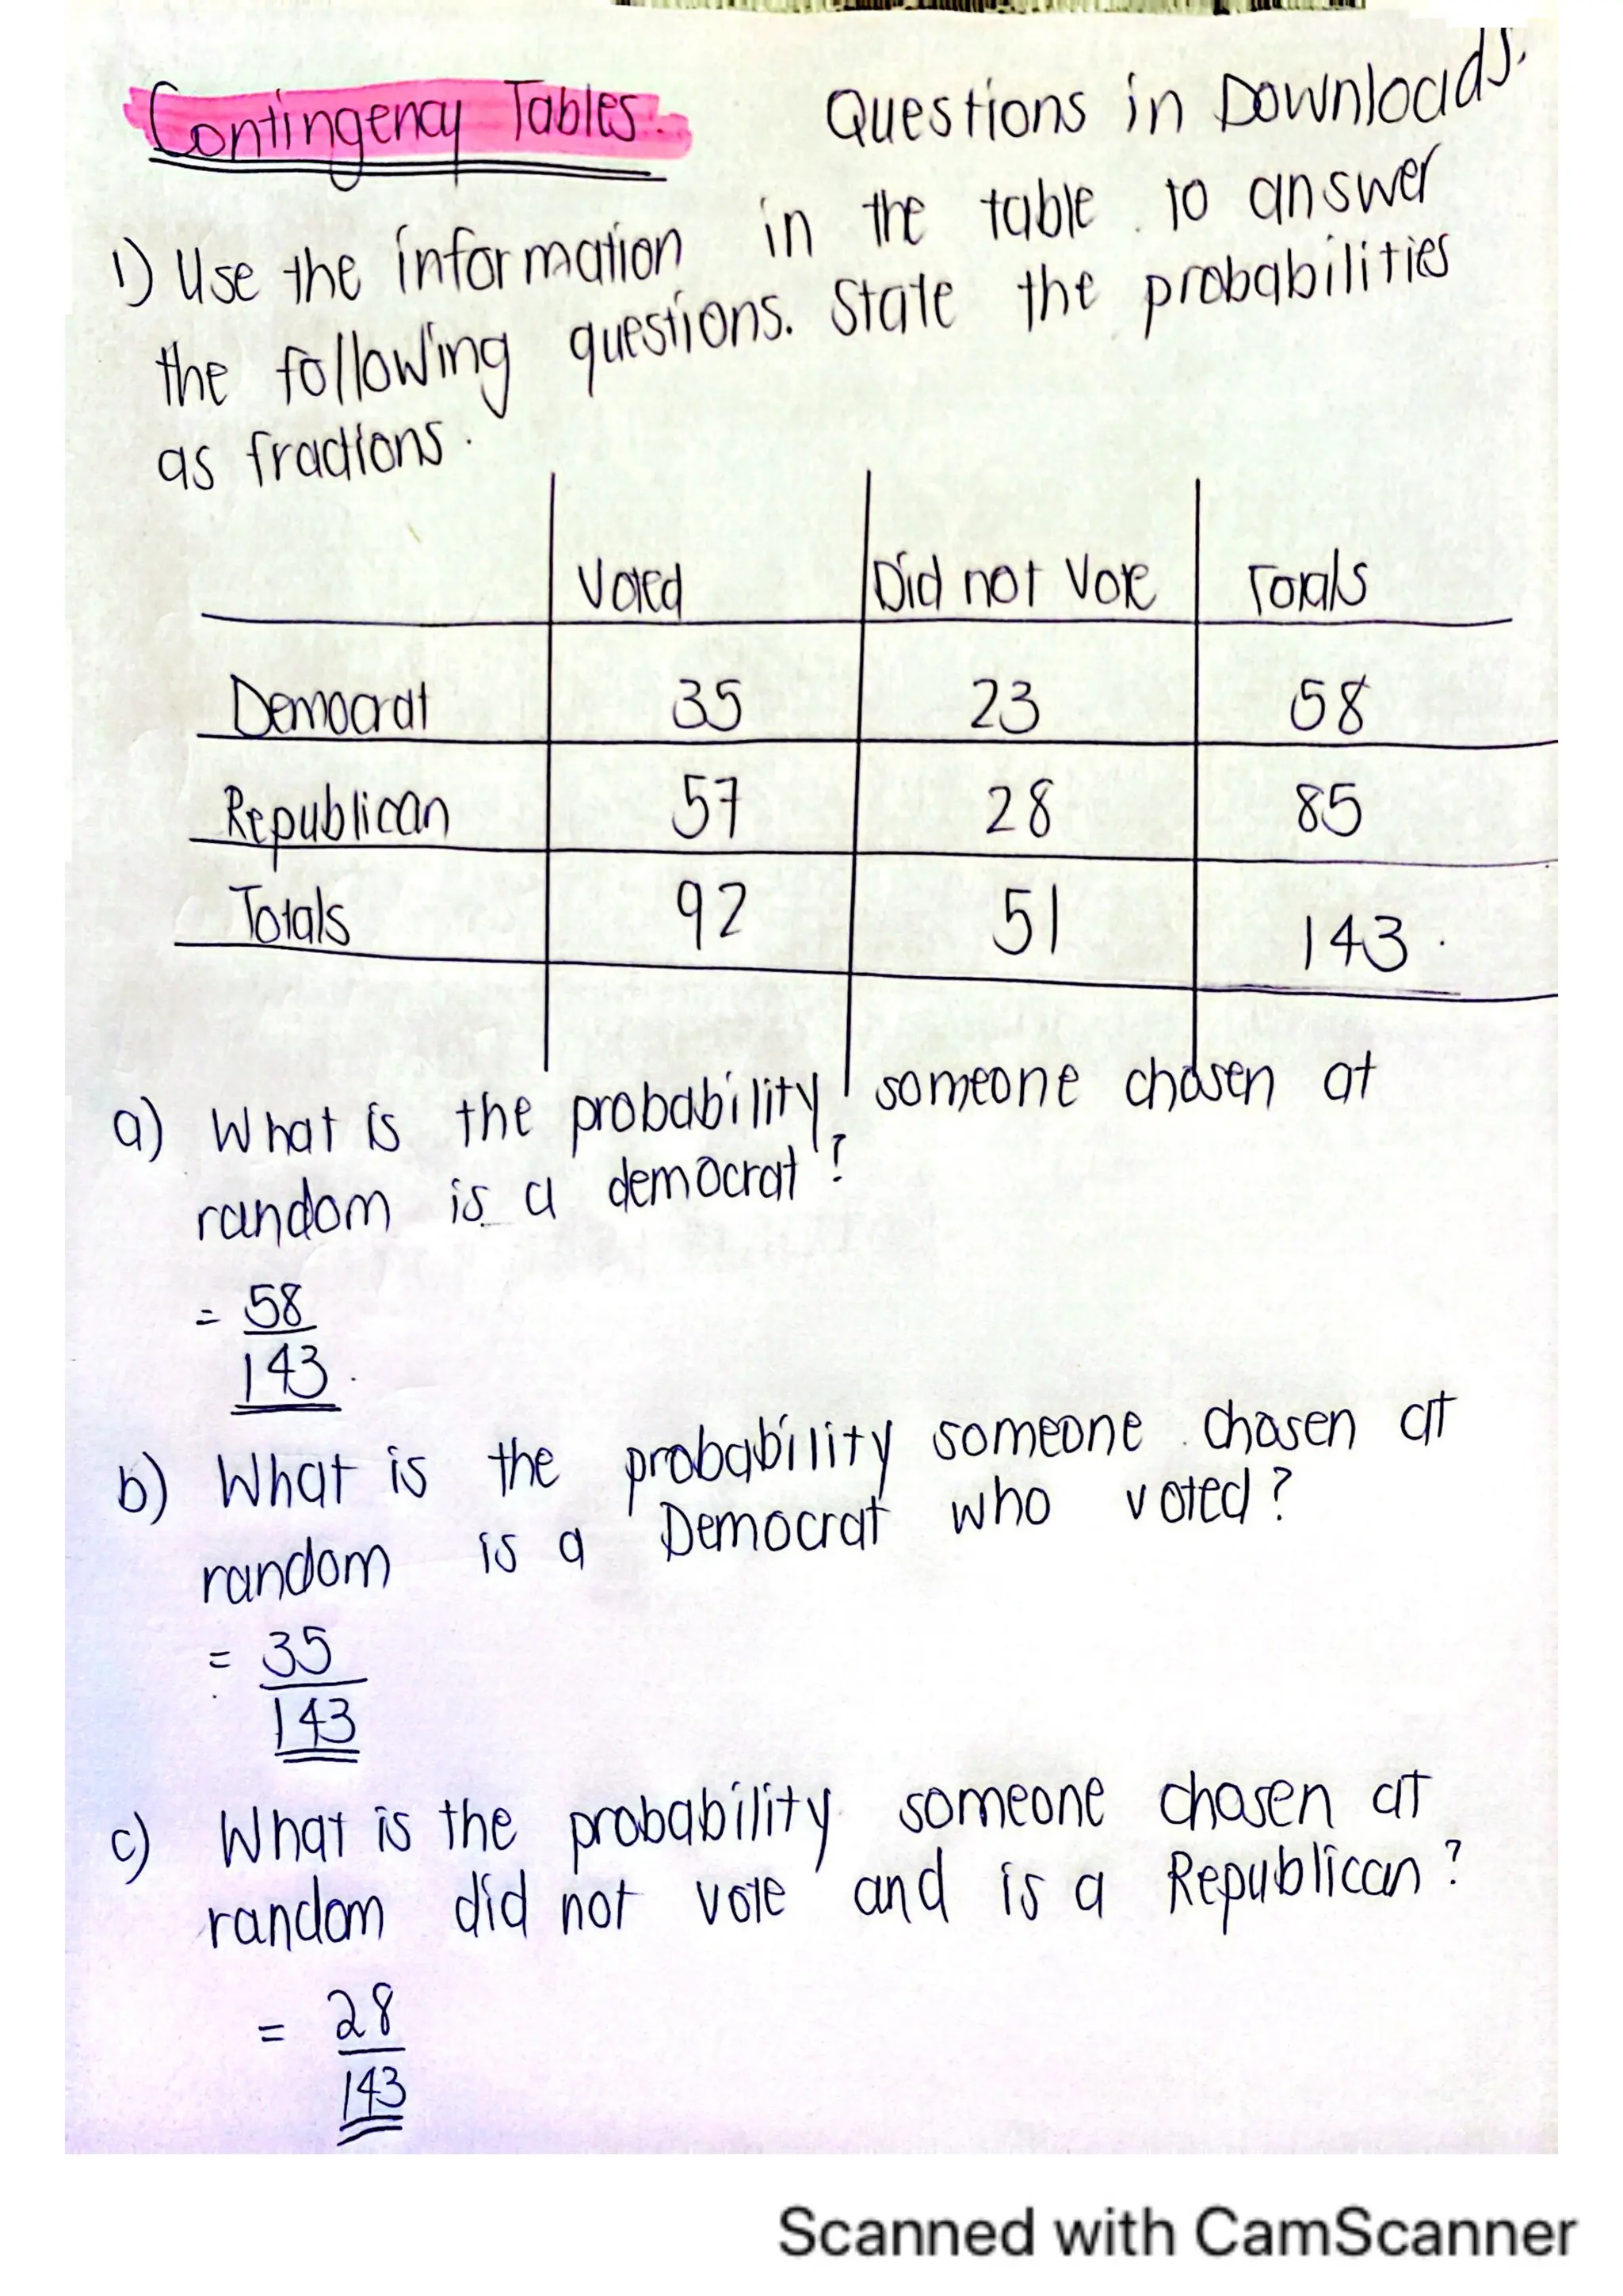 Contingency Tables. Questions in Downloads.
1) Use the information in the table to answer
the following questions. State the probabilities
as fractions.
Voted Did not Vote Totals
Democrat 35 23 58
Republican 57 28 85
Totals 92 51 143
a) What is the probability someone chosen at
random is a democrat?
= 58
143
b) What is the probability someone chosen at
random is a Democrat who voted?
= 35
143
c) What is the probability someone chosen at
random did not vote and is a Republican?
= 28
143
Scanned with CamScanner